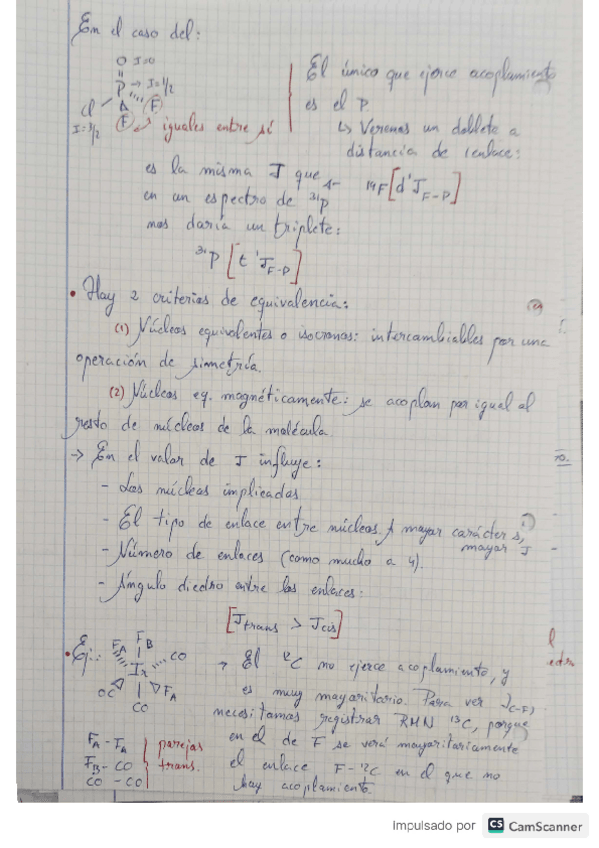 En el caso del:
O I=0
P → I=1/2
Cl
F
I=3/2
F
iguales entre sí
El único que ejerce acoplamiento
es el P
↳ Veremos un doblete a
distancia de 1 enlace:
¹⁹F [d ¹J F-P]
es la misma J que
en un espectro de ³¹P
nos daría un triplete:
³¹P [t ¹J F-P]
• Hay 2 criterios de equivalencia:
(1) Núcleos equivalentes o isocronos: intercambiables por una
operación de simetría.
(2) Núcleos eq. magnéticamente: se acoplan por igual al
resto de núcleos de la molécula.
→ En el valor de J influye:
- Los núcleos implicados
- El tipo de enlace entre núcleos. A mayor carácter s,
mayor J
- Número de enlaces (como mucho a 4).
- Ángulo diedro entre los enlaces:
[J trans > J cis]
• Ej.:
F_B
F_A
CO
Ir
OC
F_A
CO
F_A - F_A
F_B - CO
CO - CO
parejas
trans.
→ El ¹²C no ejerce acoplamiento, y
es muy mayoritario. Para ver J C-F,
necesitamos registrar RMN ¹³C, porque
en el de F se verá mayoritariamente
el enlace F-¹²C en el que no
hay acoplamiento.
Impulsado por CS CamScanner